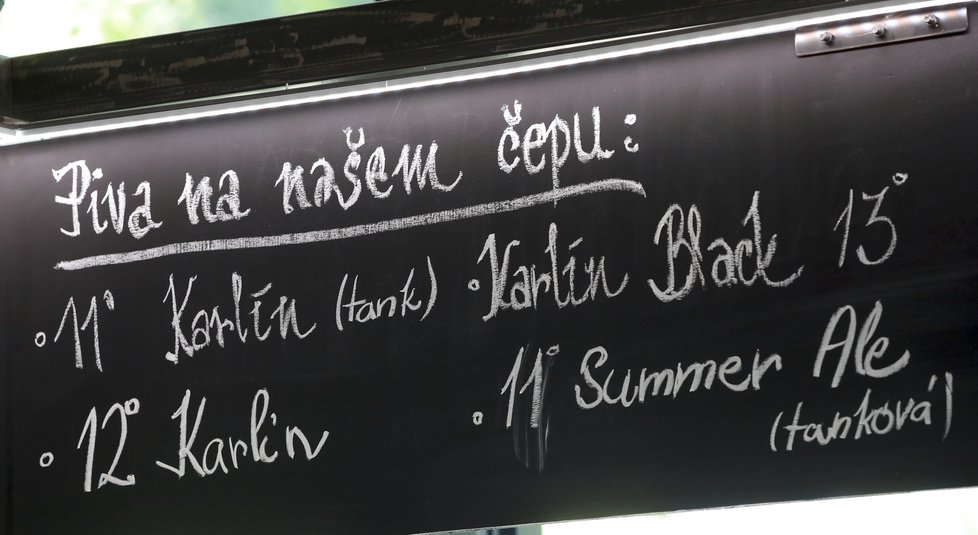 Piva na našem čepu:
• 11° Karlín (tank)
• 12° Karlín
• Karlín Black 13°
• 11° Summer Ale
(tanková)